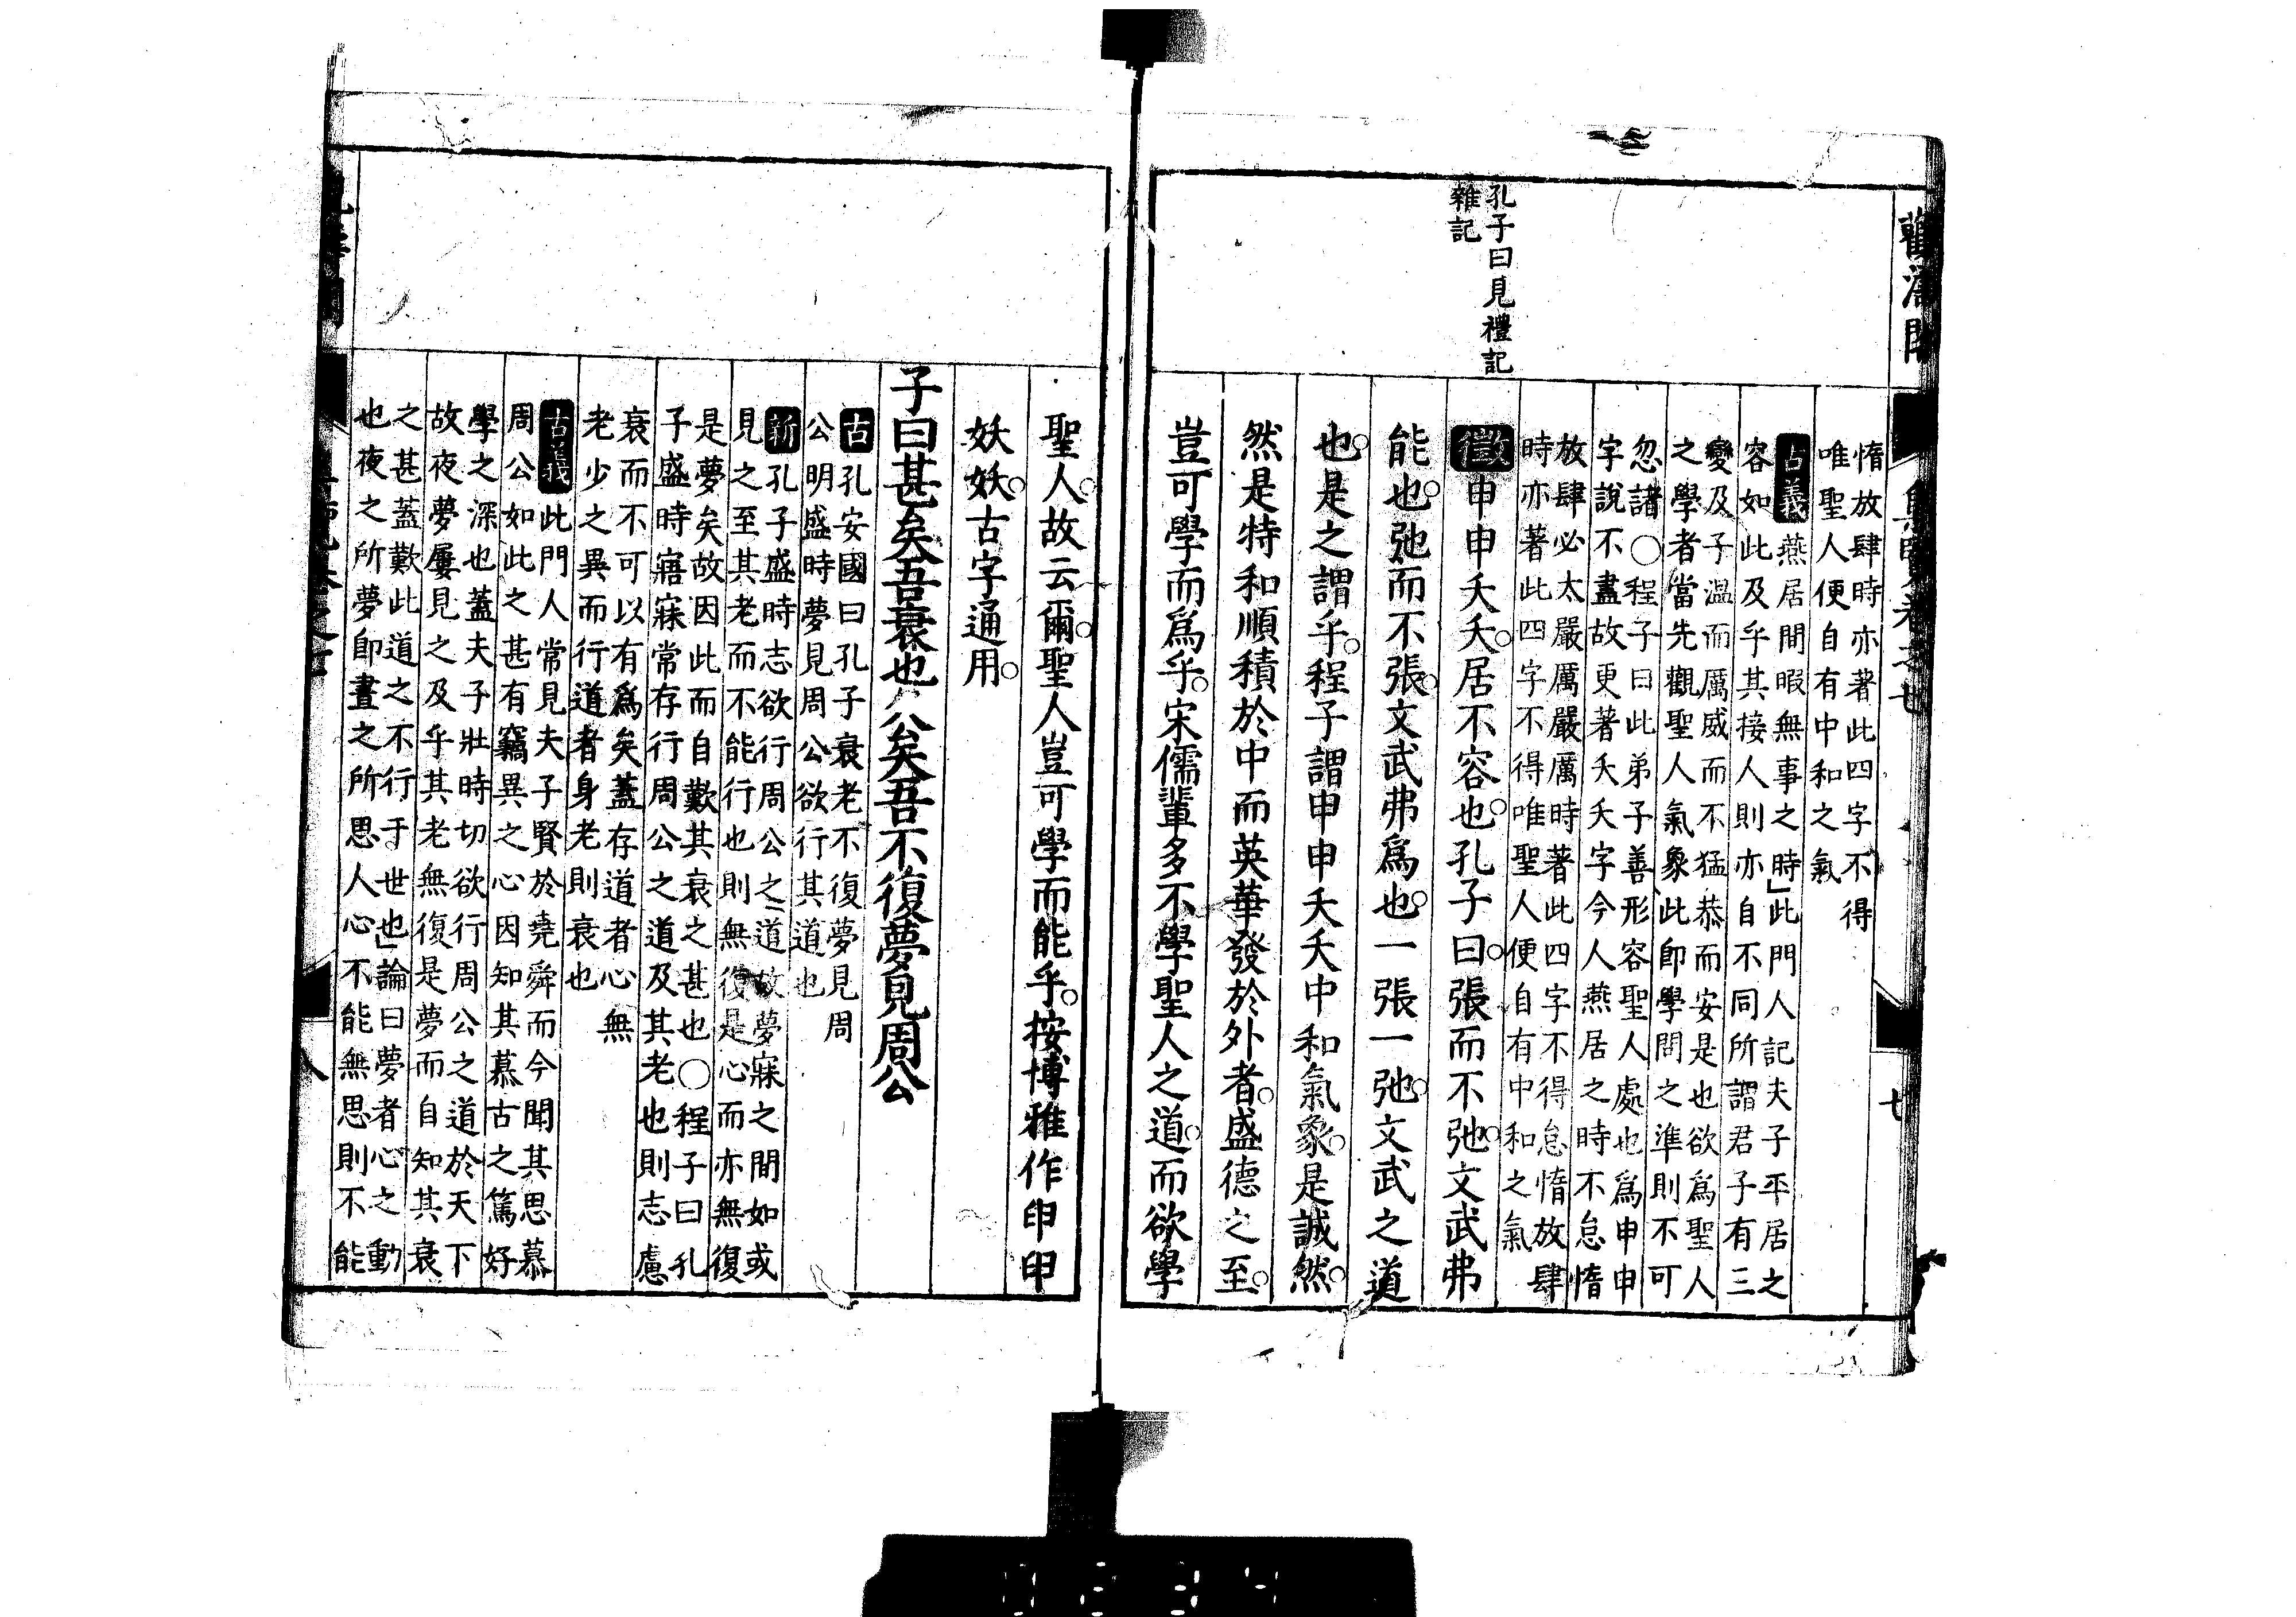 孔子曰見禮記
雜記
惰放肆時亦著此四字不得
唯聖人便自有中和之氣
古義燕居閒暇無事之時」此門人記夫子平居之
容如此及乎其接人則亦自不同所謂君子有三
變及子溫而厲威而不猛恭而安是也欲爲聖人
之學者當先觀聖人氣象此卽學問之準則不可
忽諸○程子曰此弟子善形容聖人處也爲申申
字說不盡故更著夭夭字今人燕居之時不怠惰
放肆必太嚴厲嚴厲時著此四字不得怠惰放肆
時亦著此四字不得唯聖人便自有中和之氣
徵申申夭夭居不容也孔子曰張而不弛文武弗
能也弛而不張文武弗爲也一張一弛文武之道
也是之謂乎程子謂申申夭夭中和氣象是誠然
然是特和順積於中而英華發於外者盛德之至
豈可學而爲乎宋儒輩多不學聖人之道而欲學
聖人故云爾聖人豈可學而能乎按博雅作䏥䏥
妖妖古字通用
子曰甚矣吾衰也公矣吾不復夢見周公
古孔安國曰孔子衰老不復夢見周
公明盛時夢見周公欲行其道也
新孔子盛時志欲行周公之道故夢寐之間如或
見之至其老而不能行也則無復是心而亦無復
是夢矣故因此而自歎其衰之甚也○程子曰孔
子盛時寤寐常存行周公之道及其老也則志慮
衰而不可以有爲矣蓋存道者心無
老少之異而行道者身老則衰也
古義此門人常見夫子賢於堯舜而今聞其思慕
周公如此之甚有竊異之心因知其慕古之篤好
學之深也蓋夫子壯時切欲行周公之道於天下
故夜夢屢見之及乎其老無復是夢而自知其衰
之甚蓋歎此道之不行于世也」論曰夢者心之動
也夜之所夢卽晝之所思人心不能無思則不能
八